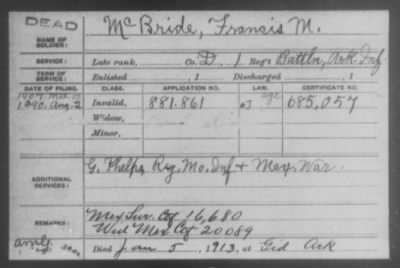 DEAD
NAME OF SOLDIER: McBride, Francis M.
SERVICE: Late rank, Co. D, 1 Reg't Battln, Ark. Inf
TERM OF SERVICE: Enlisted , 1 Discharged , 1
DATE OF FILING. CLASS. APPLICATION NO. LAW. CERTIFICATE NO.
1907. Mar. 15 age
1890. Aug. 2 Invalid, 881.861 685,057
Widow,
Minor,
ADDITIONAL SERVICES: G. Phelps Reg. Mo. Inf & Mex. War.
REMARKS: Mex Sur. Ctf 16,680
Wid Mex Ctf 20089
Died Jan 5, 1913, at Gid Ark